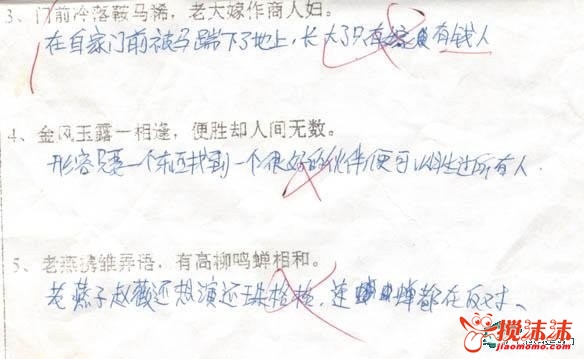 3、门前冷落鞍马稀，老大嫁作商人妇。
在自家门前被马踹下了地上，长大了只有嫁 有钱人
4、金风玉露一相逢，便胜却人间无数。
形容只要一个东西找到一个很好的伙伴便可以胜过所有人.
5、老燕携雏弄语，有高柳鸣蝉相和。
老燕子赵薇还想演还珠格格，连 蝉都在反对、
搅沫沫
jiaomomo.com